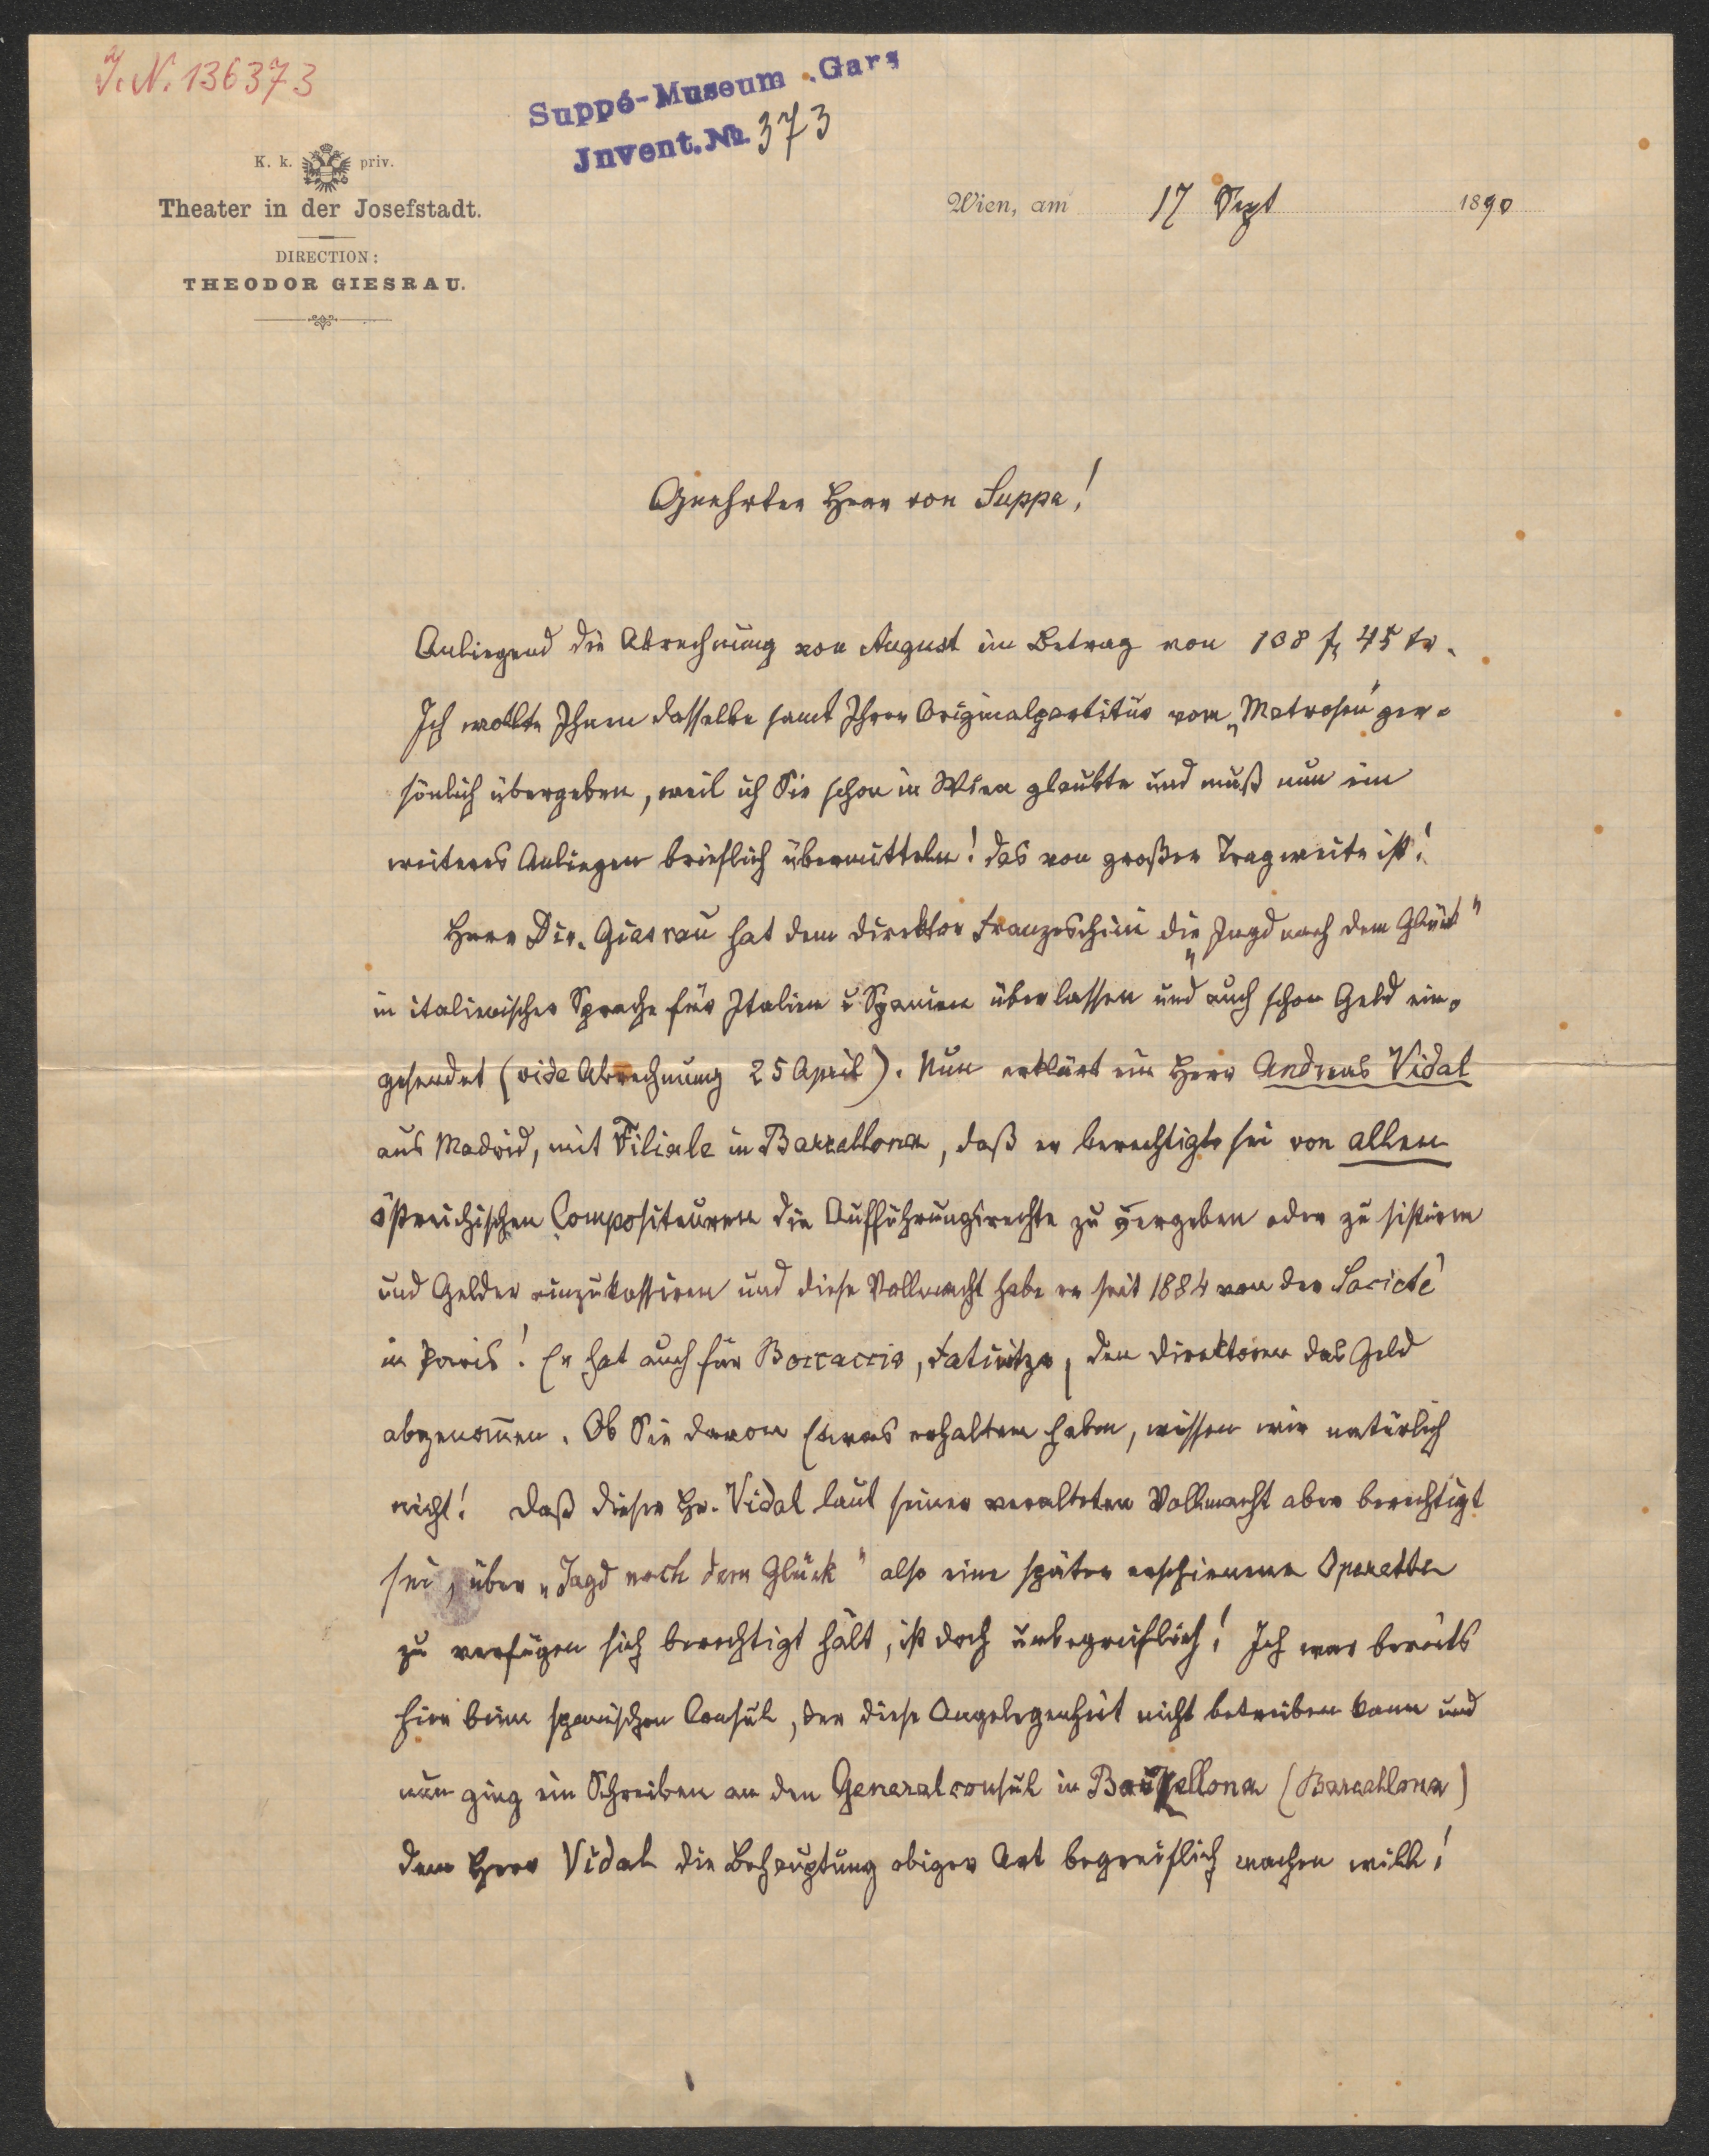 I. N. 136373
Suppé-Museum Gars
Invent. Nr. 373
K. k. priv.
Theater in der Josefstadt.
DIRECTION:
THEODOR GIESRAU.
Wien, am 17 Sept 1890
Geehrter Herr von Suppe!
Anliegend die Abrechnung von August im Betrag von 108 f, 45 kr.
Ich wollte Ihnen dasselbe samt Ihrer Originalpartitur vom „Matrosen" per-
sönlich übergeben, weil ich Sie schon in Wien glaubte und muß nun ein
weiteres Anliegen brieflich übermitteln! das von großer Tragweite ist!
Herr Dir. Giesrau hat dem Direktor Franzeschini die „Jagd nach dem Glück"
in italienischer Sprache für Italien u Spanien überlassen und auch schon Geld ein-
gesendet (vide Abrechnung 25 April). Nun erklärt ein Herr Andreas Vidal
aus Madrid, mit Filiale in Barzellona, daß er berechtigt sei von allen
östreichischen Compositeuren die Aufführungsrechte zu vergeben oder zu sistiren
und Gelder einzukassiren und diese Vollmacht habe er seit 1884 von der Societé
in Paris! Er hat auch für Boccaccio, Fatinitza, den Direktoren das Geld
abgenom̄en. Ob Sie davon Etwas erhalten haben, wissen wir natürlich
nicht! Daß dieser Hr. Vidal laut seiner veralteten Vollmacht aber berechtigt
sei, über „Jagd nach dem Glück" also eine später erschienene Operette
zu verfügen sich berechtigt hält, ist doch unbegreiflich! Ich war bereits
hier beim spanischen Consul, der diese Angelegenheit nicht betreiben kann und
nun ging ein Schreiben an den Generalconsul in Barzellona (Barcellona)
dem Herr Vidal die Behauptung obiger Art begreiflich machen will!